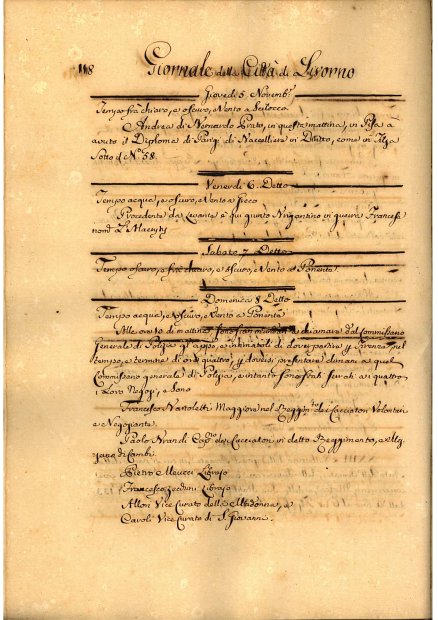 118 Giornale della Città di Livorno
Giovedì 5 Novemb.e
Tempo frà chiaro, e oscuro, Vento a Scilocco
Andrea di Prato, in questa mattina, in Pisa a
auto il Diploma di Parigi di in Diritto, come in Filza
Sotto il N.o 58.
Venerdì 6. Detto
Tempo acqua, e oscuro, e Vento a
Procedente da Levante è qui giunto in guerra Francese
nom.o
Sabato 7 Detto
Tempo oscuro, e frà chiaro, e oscuro, e Vento a Ponente
Domenica 8 Detto
Tempo acqua, e oscuro, e Vento a Ponente
Alle ore di mattina sono stati mandati a chiamare dal Commissario
Generale di Polizia gl'appo, e intimatoli di dover partire p Firenze nel
tempo, e termine di ore quattro, e doversi presentare dimani a quel
Commissario generale di Polizia, e intanto sono stati serrati ai quattro
i Loro Negozj, e sono
Francesco Maggiore nel Reggim.to dei Cacciatori Volontari
e Negoziante
Paolo Cap.no dei Cacciatori in detto Reggimento, e
di Cambi
Pietro Meucci Libraio
Francesco Libraio
Vice Curato della Madonna, e
Cavoli Vice Curato di S. Giovanni.